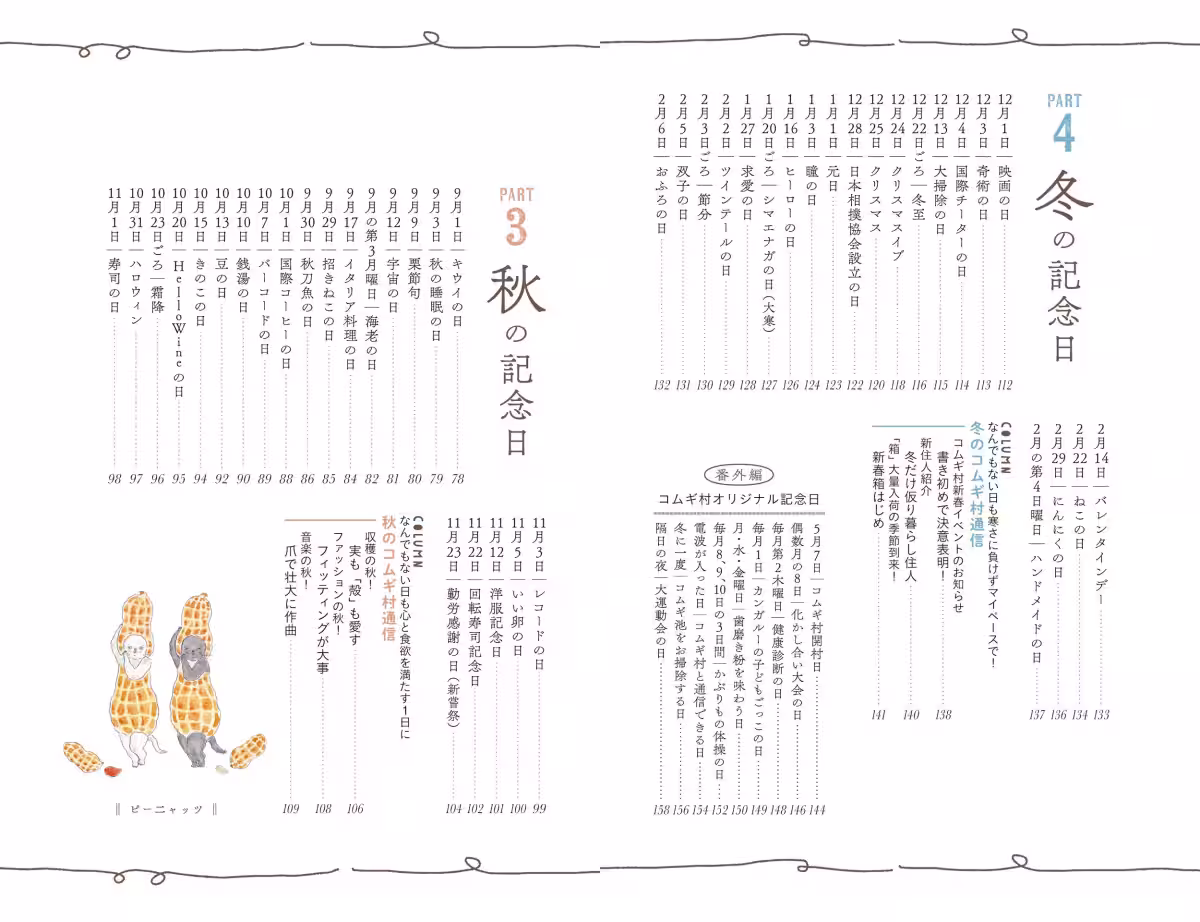 PART
4
冬の記念日
12月1日―映画の日 112
12月3日―奇術の日 113
12月4日―国際チーターの日 114
12月13日―大掃除の日 115
12月22日ごろ―冬至 116
12月24日―クリスマスイブ 118
12月25日―クリスマス 120
12月28日―日本相撲協会設立の日 122
1月1日―元日 123
1月3日―瞳の日 124
1月16日―ヒーローの日 126
1月20日ごろ―シマエナガの日(大寒) 127
1月27日―求愛の日 128
2月2日―ツインテールの日 129
2月3日ごろ―節分 130
2月5日―双子の日 131
2月6日―おふろの日 132
2月14日―バレンタインデー 133
2月22日―ねこの日 134
2月29日―にんにくの日 136
2月の第4日曜日―ハンドメイドの日 137
COLUMN
なんでもない日も寒さに負けずマイペースで!
冬のコムギ村通信
コムギ村新春イベントのお知らせ
書き初めで決意表明! 138
新住人紹介
冬だけ仮り暮らし住人 140
「箱」大量入荷の季節到来!
新春箱はじめ 141
番外編
コムギ村オリジナル記念日
5月7日―コムギ村開村日 144
偶数月の8日―化かし合い大会の日 146
毎月第2木曜日―健康診断の日 148
毎月1日―カンガルーの子どもごっこの日 149
月・水・金曜日―歯磨き粉を味わう日 150
毎月8、9、10日の3日間―かぶりもの体操の日 152
電波が入った日―コムギ村と通信できる日 154
冬に一度―コムギ池をお掃除する日 156
隔日の夜―大運動会の日 158
PART
3
秋の記念日
9月1日―キウイの日 78
9月3日―秋の睡眠の日 79
9月9日―栗節句 80
9月12日―宇宙の日 81
9月の第3月曜日―海老の日 82
9月17日―イタリア料理の日 84
9月29日―招きねこの日 85
9月30日―秋刀魚の日 86
10月1日―国際コーヒーの日 88
10月7日―バーコードの日 89
10月10日―銭湯の日 90
10月13日―豆の日 92
10月15日―きのこの日 94
10月20日―HelloWineの日 95
10月23日ごろ―霜降 96
10月31日―ハロウィン 97
11月1日―寿司の日 98
11月3日―レコードの日 99
11月5日―いい卵の日 100
11月12日―洋服記念日 101
11月22日―回転寿司記念日 102
11月23日―勤労感謝の日(新嘗祭) 104
COLUMN
なんでもない日も心と食欲を満たす1日に
秋のコムギ村通信
収穫の秋!
実も「殻」も愛す 106
ファッションの秋!
フィッティングが大事 108
音楽の秋!
爪で壮大に作曲 109
ピーニャッツ